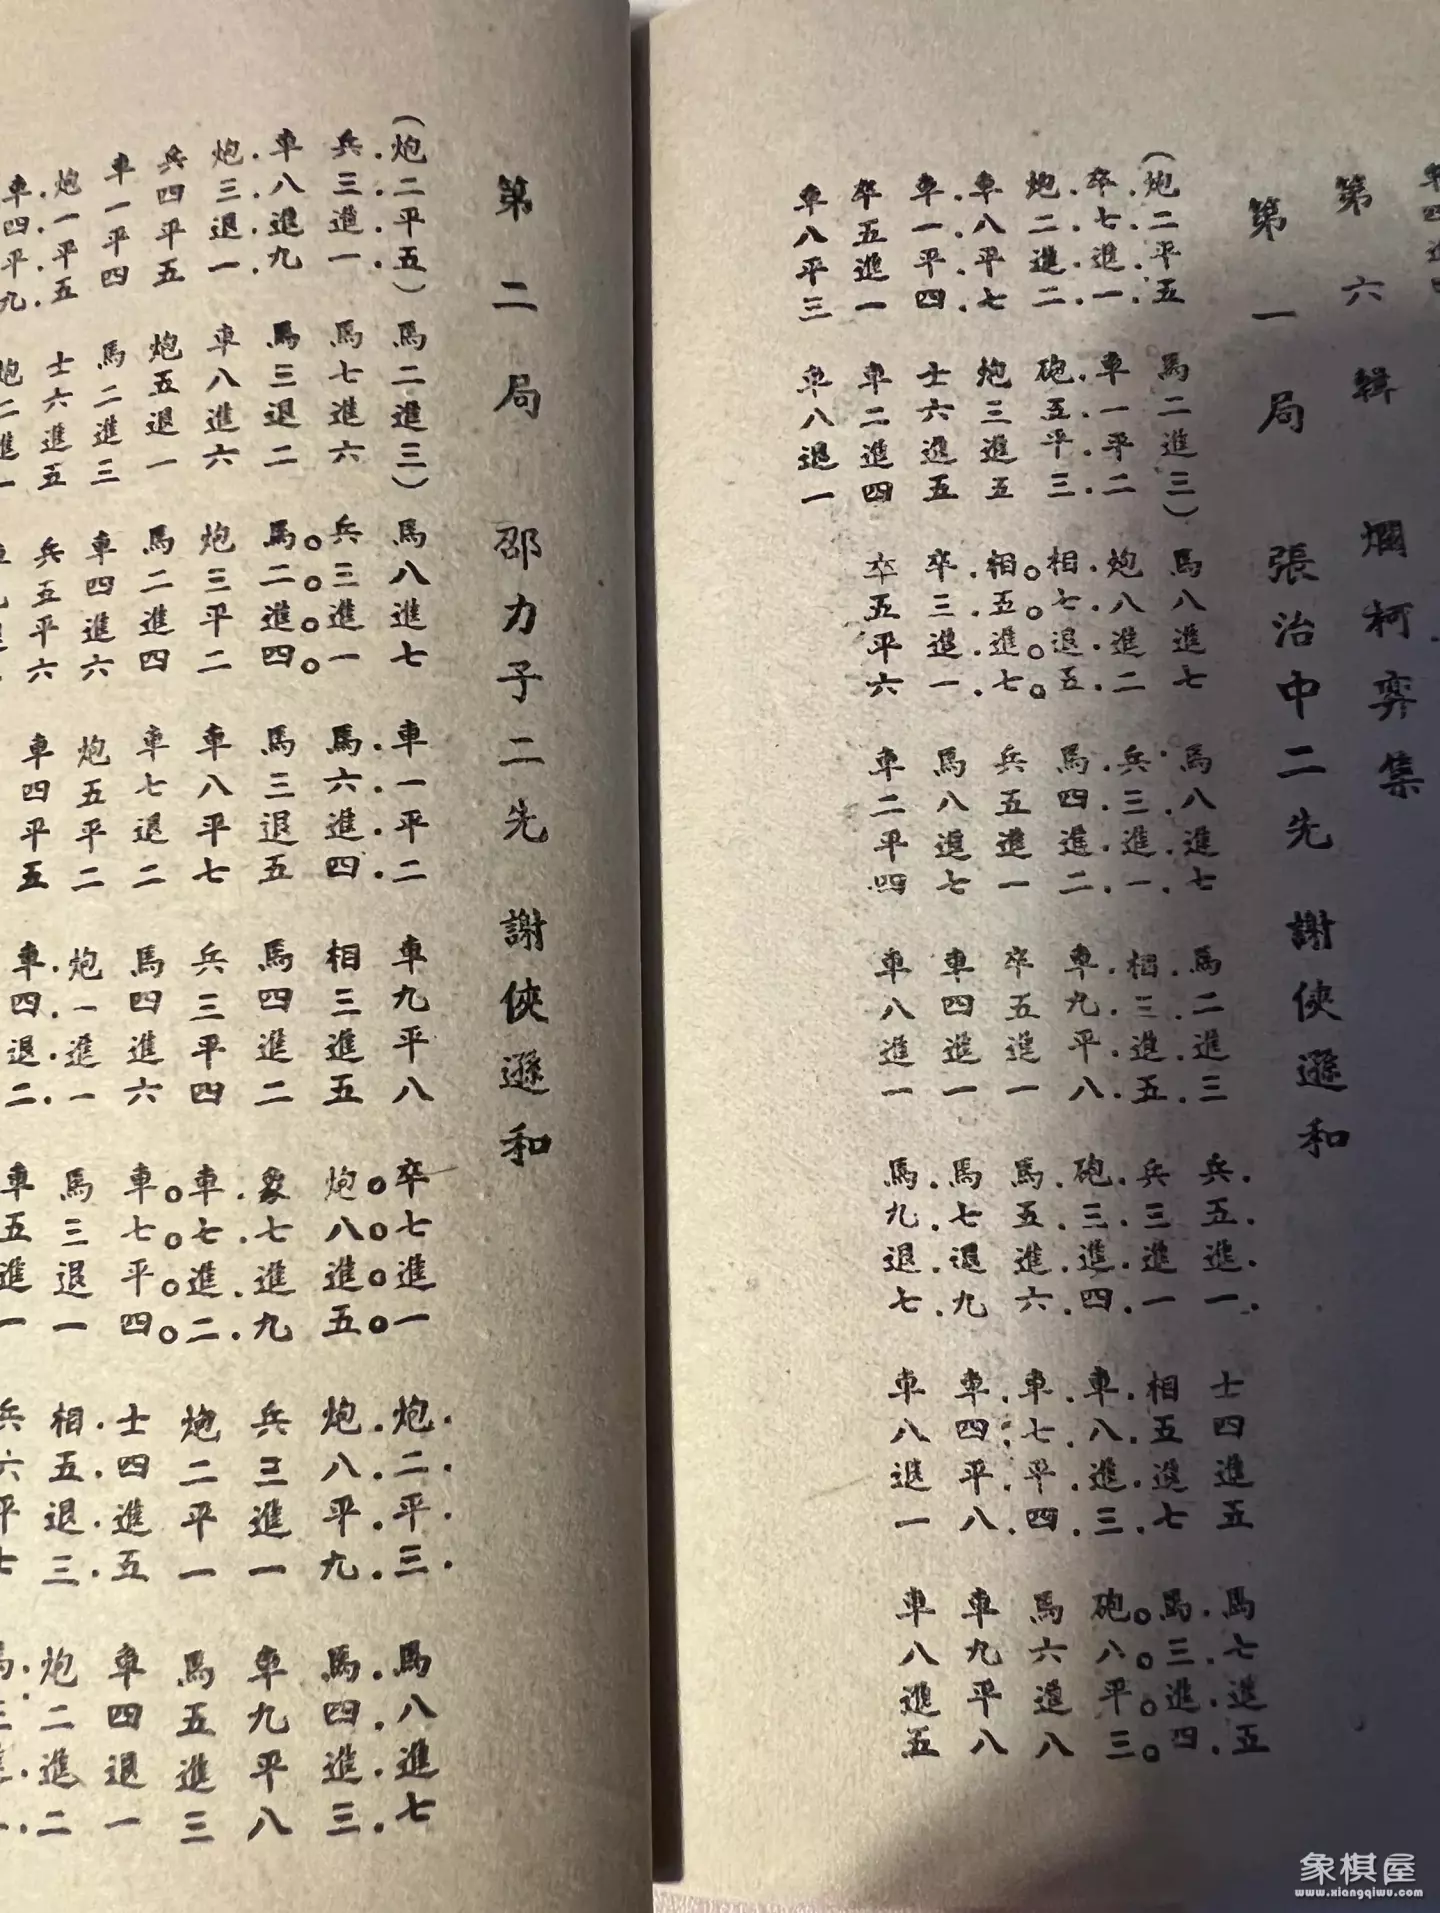 第六輯 爛柯弈集
第一局 張治中二先 謝俠遜和
(炮二平五 馬二進三) 馬八進七 馬八進七 馬二進三 兵五進一 士四進五 馬七進五
卒七進一 車一平二 炮八進二 兵三進一 相三進五 兵三進一 相五進七 馬三進四
炮二進二 砲五平三 相七退五 馬四進二 車九平八 砲三進四 車八進三 砲八平三
車八平七 炮三進五 相五進七 兵五進一 卒五進一 馬五進六 車七平四 馬六進八
車一平四 士六進五 卒三進一 馬八進七 車四進一 馬七退九 車四平八 車九平八
卒五進一 車二進四 卒五平六 車二平四 車八進一 馬九退七 車八退一 車八進五
車八平三 車八退一
第二局 邵力子二先 謝俠遜和
(炮二平五) 馬二進三) 馬八進七 車一平二 車九平八 卒七進一 炮二平三 馬八進七
兵三進一 馬七進六 兵三進一 馬六進四 相三進五 炮八進五 炮八平九 馬四進三
車八進九 馬三退二 馬二進四 馬三退五 馬四進二 象七進九 兵三進一 車九平八
炮三退一 車八進六 炮三平二 車八平七 兵三平四 車七進二 炮二平一 馬五進三
兵四平五 炮五退一 馬二進四 車七退二 馬四進六 車七平四 士四進五 車四退一
車一平四 馬二進三 車四進六 炮五平二 炮一進一 馬三退一 相五退三 炮二進二
炮一平五 士六進五 兵五平六 車四平五 車四退二 車五進一 兵六平七
車四平九 炮二進一
象棋屋
www.xiangqiwu.com